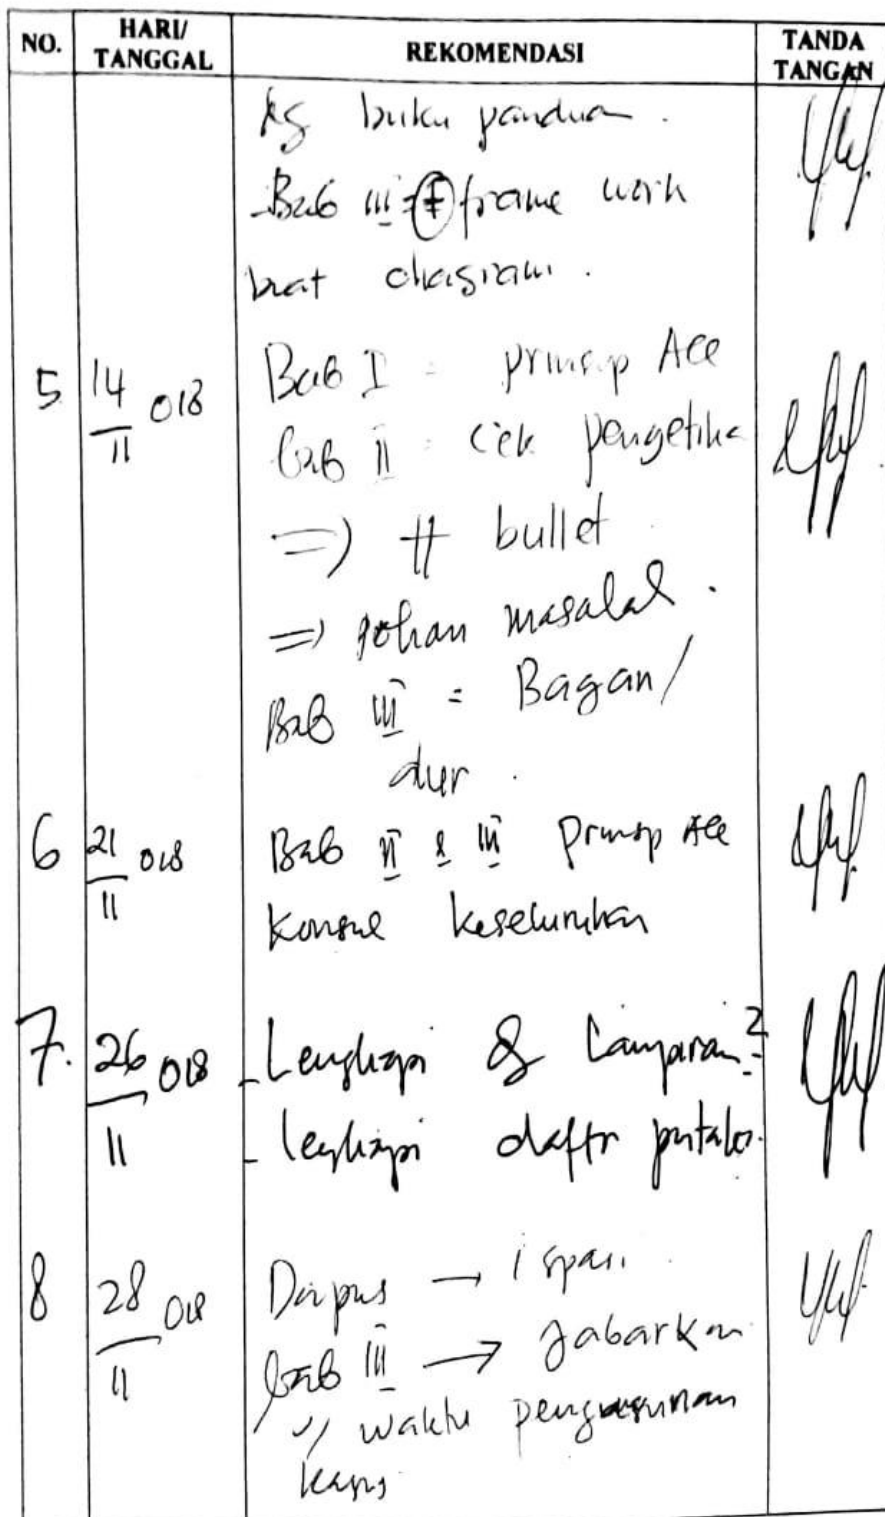 NO. HARI/ TANGGAL REKOMENDASI TANDA TANGAN
buku panduan.
- Bab III = frame work
buat diagram.
5 14/11 018 Bab I = prinsip Acc
Bab II = cek pengetika
=> # bullet
=> masalah.
Bab III = Bagan/
alur.
6 21/11 018 Bab II & III prinsip Acc
Konsul keseluruhan
7. 26/11 018 - Lengkapi & Lampiran2
- lengkapi daftr pustaka.
8 28/11 018 Dapus → 1 spasi.
bab III → Jabarkan
waktu
kasus